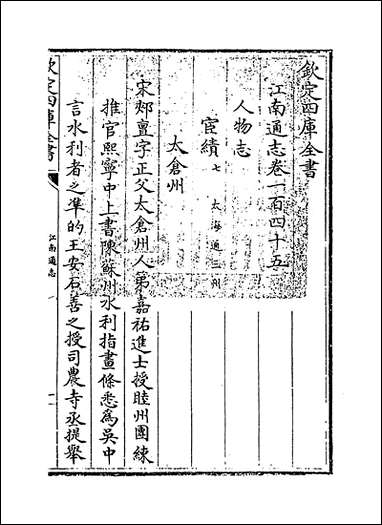 欽定四庫全書
江南通志卷一百四十五
人物志
宦績 七 太 海 通 三 州
太倉州
宋郟亶字正父太倉州人第嘉祐進士授睦州團練
推官熙寧中上書陳蘇州水利指畫條悉為吳中
言水利者之準的王安石善之授司農寺丞提舉
欽定四庫全書
江南通志
一